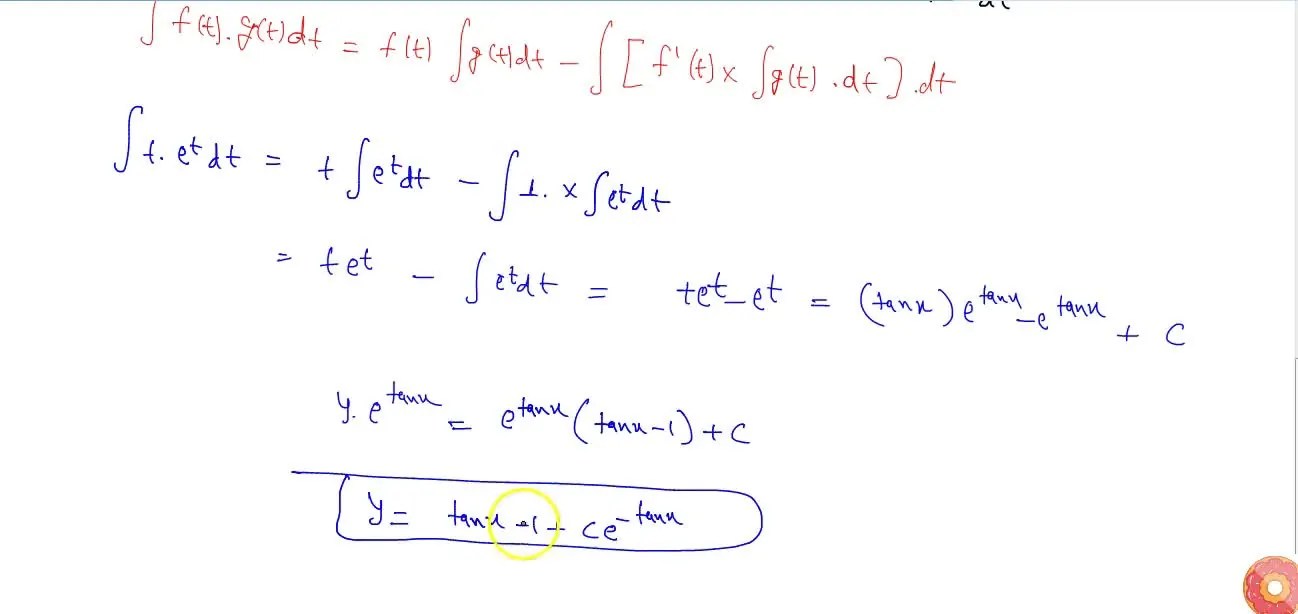 ∫ f(t).g(t)dt = f(t) ∫g(t)dt - ∫ [ f'(t) x ∫g(t) .dt ] .dt
∫ t. e^t dt = t ∫ e^t dt - ∫ 1. x ∫ e^t dt
= t e^t - ∫ e^t dt = te^t - e^t = (tanx) e^tanx - e^tanx + C
y. e^tanx = e^tanx (tanx - 1) + C
y = tanx - 1 + ce^-tanx